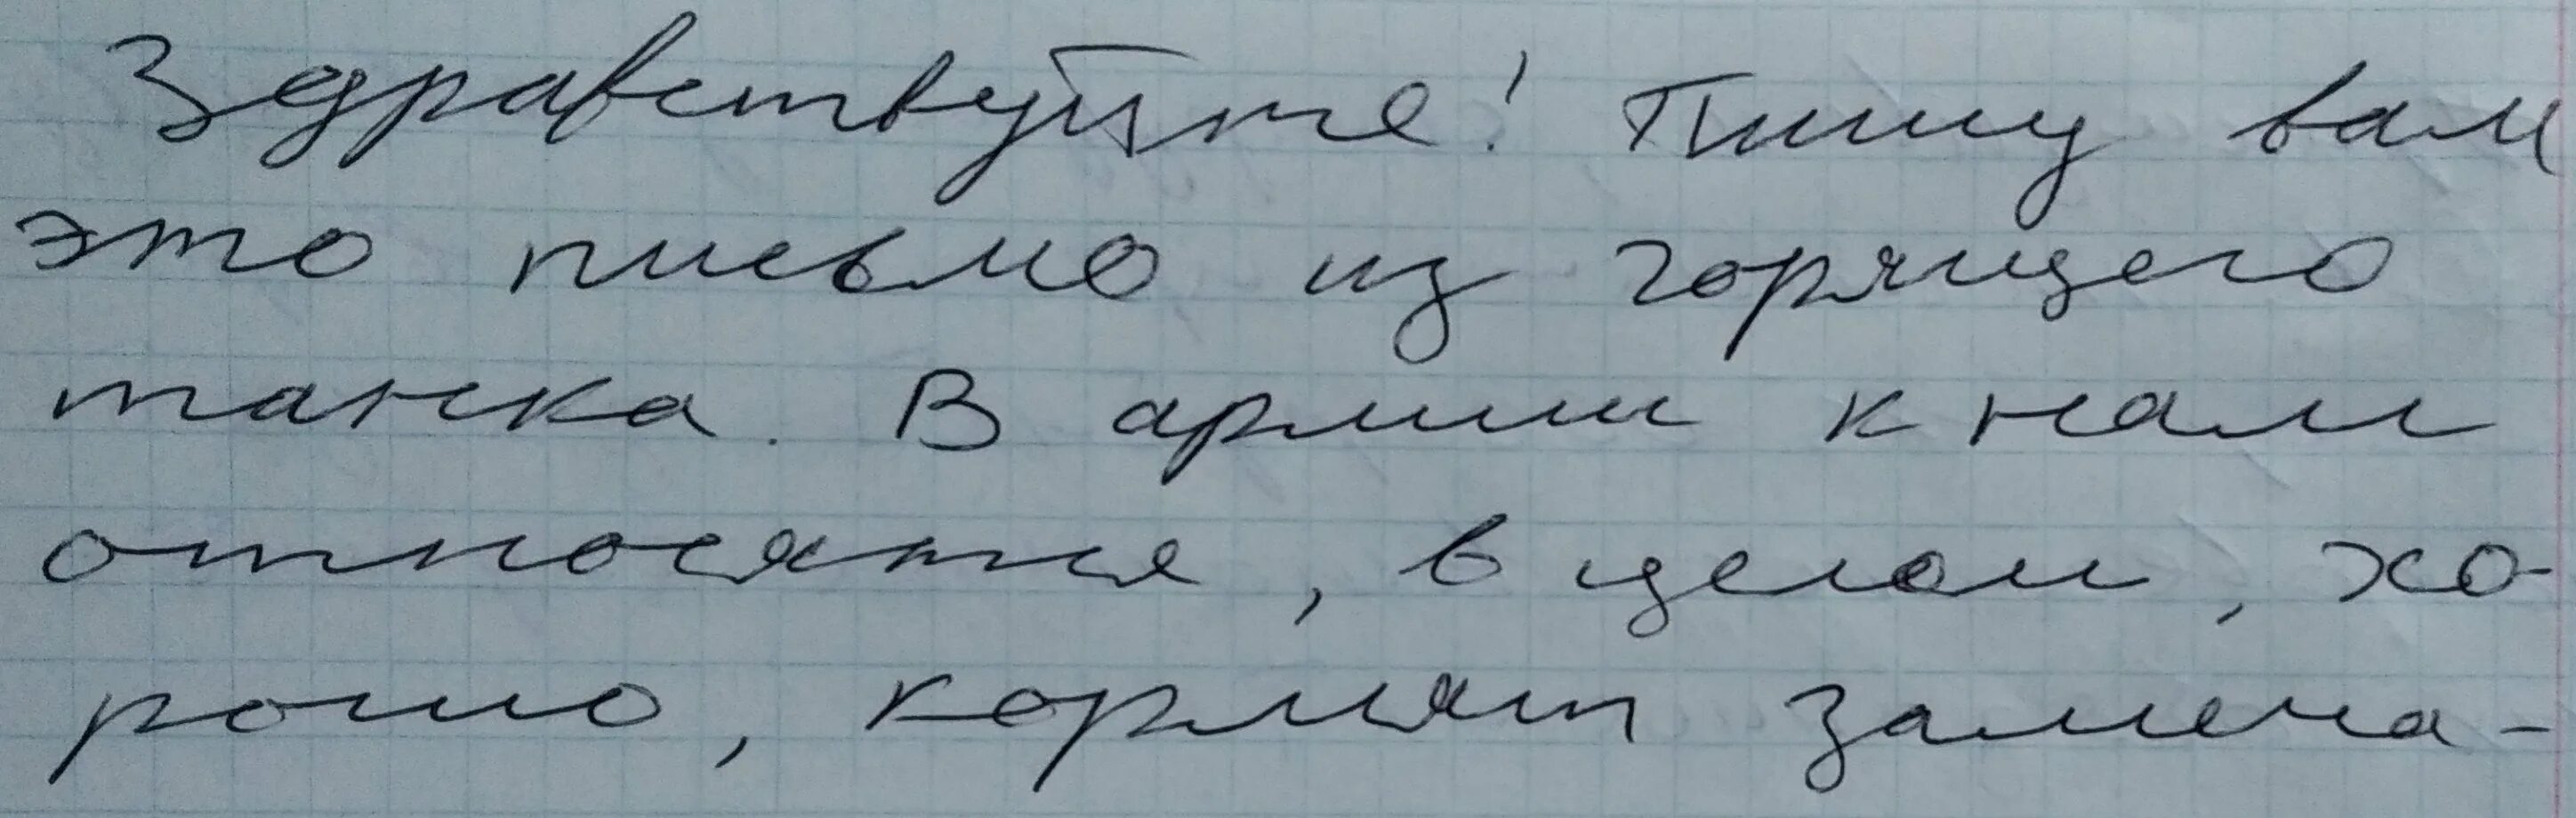 Здравствуйте! Пишу вам
это письмо из горящего
танка. В армии к нам
относятся, в целом, хо-
рошо, кормят замеча-